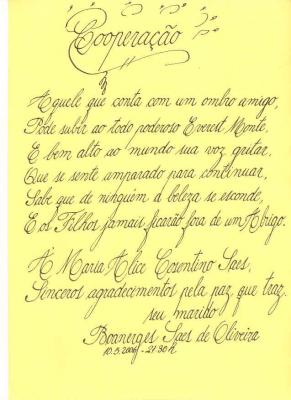 Cooperação
Aquele que conta com um ombro amigo,
Pode subir ao todo poderoso Everest Monte,
E bem alto ao mundo sua voz gritar,
Que se sente amparado para continuar,
Sabe que de ninguém a beleza se esconde,
E os Filhos jamais ficarão fora de um Abrigo.
À Maria Alice Cosentino Saes,
Senceros agradecimentos pela paz, que traz.
seu marido
Boanerges Saes de Oliveira
10.3.2006 - 21:30 h